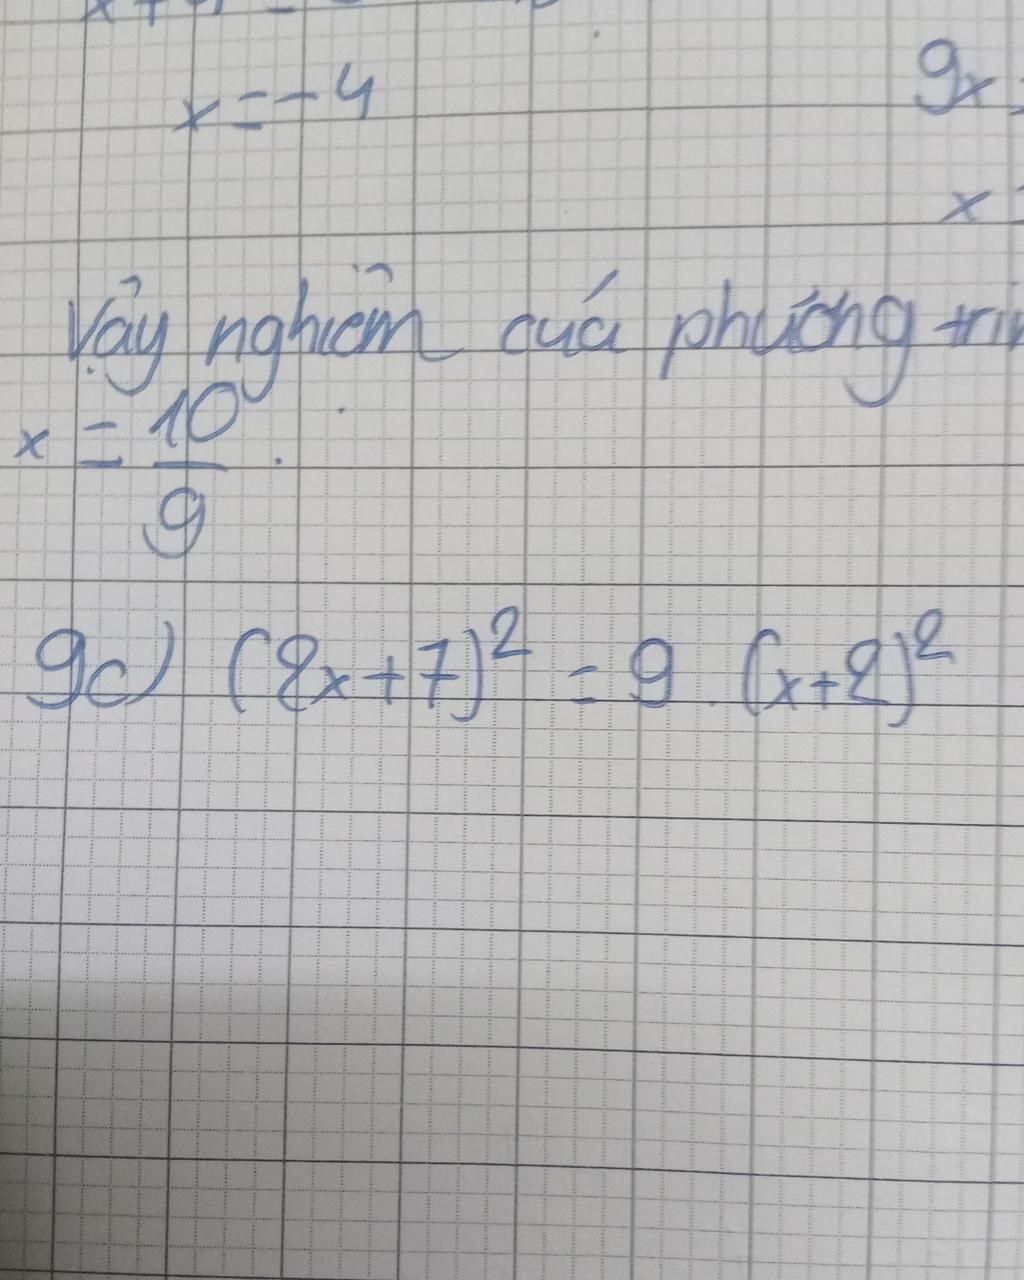 x = -4
9x
x
Vậy nghiệm của phương
x = 10/9 .
9c) (2x+7)² = 9 . (x+2)²